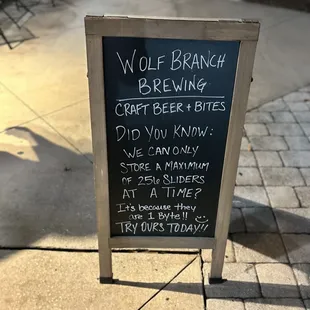 WOLF BRANCH
BREWING
CRAFT BEER + BITES
DID YOU KNOW:
WE CAN ONLY
STORE A MAXIMUM
OF 256 SLIDERS
AT A TIME?
It's because they
are 1 Byte!!
TRY OURS TODAY!!